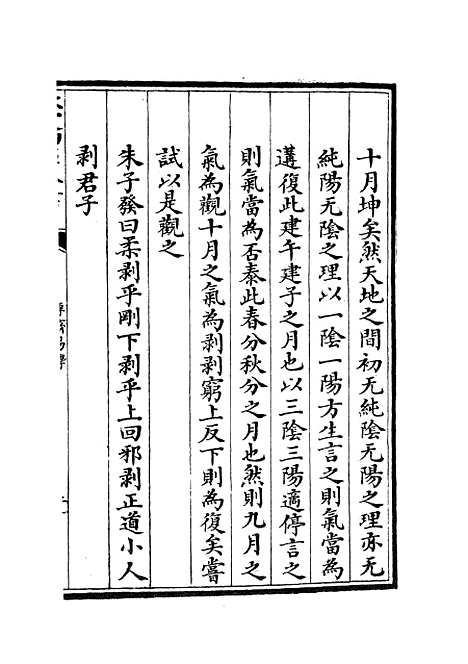 十月坤矣然天地之間初无純陰无陽之理亦无
純陽无陰之理以一陰一陽方生言之則氣當為
遘復此建午建子之月也以三陰三陽適停言之
則氣當為否泰此春分秋分之月也然則九月之
氣為觀十月之氣為剥剥窮上反下則為復矣嘗
試以是觀之
朱子發曰柔剥乎剛下剥乎上回邪剥正道小人
剥君子